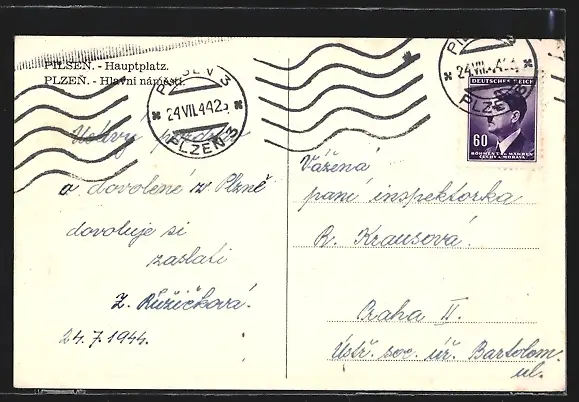 PILSEN. - Hauptplatz.
PLZEŇ. - Hlavní náměstí.
PILSEN 3
24.VII.44 22
PLZEŇ 3
24.VII.44
PLZEŇ
DEUTSCHES REICH
60
BÖHMEN U. MÄHREN
ČECHY A MORAVA
o dovolené z Plzně
dovoluje si
zaslati
Z. Růžičková.
24.7.1944.
Vážená
paní inspektorka
R. Krausová.
Praha II.
Ústř. soc. úř. Bartolom.
ul.